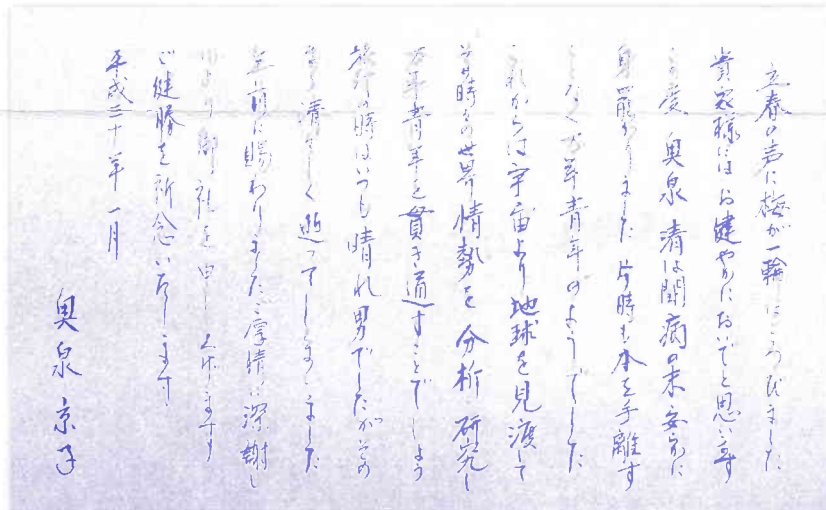 立春の声に梅が一輪ほころびました
貴家様にはお健やかにおいでと思います
この度 奥泉 清は闘病の末安らかに
身罷りました 片時も本を手離す
ことなく万年青年のようでした
これからは宇宙より地球を見渡して
その時々の世界情勢を分析 研究し
万年青年を貫き通すことでしょう
旅行の時はいつも晴れ男でしたがその
まま清々しく逝ってしまいました
生前に賜わりましたご厚情に深謝し
心より御礼を申し上げます
ご健勝を祈念いたします
平成三十年 一月
奥泉 京子